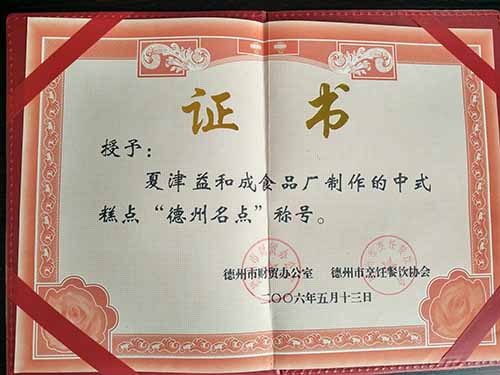 证 书
授予：
夏津益和成食品厂制作的中式
糕点“德州名点”称号。
德州市财贸办公室 德州市烹饪餐饮协会
二〇〇六年五月十三日